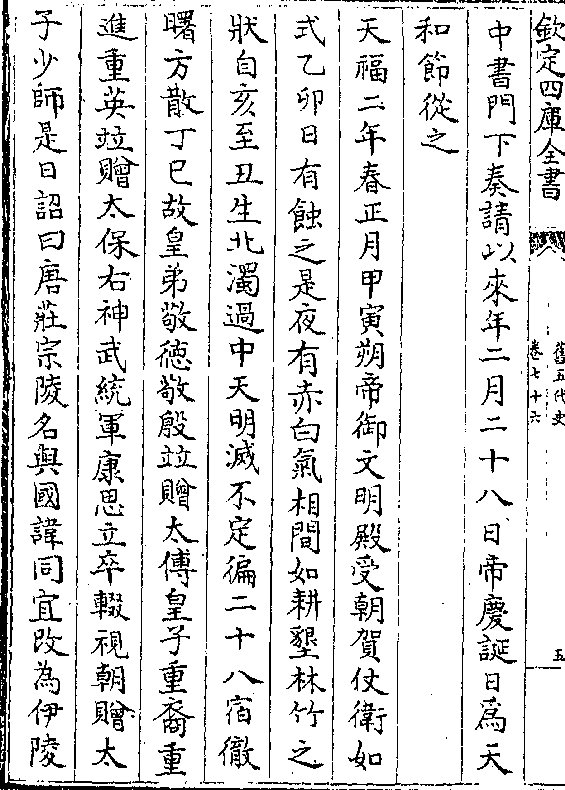 欽定四庫全書
舊五代史
卷七十六
五
中書門下奏請以來年二月二十八日帝慶誕日為天
和節從之
天福二年春正月甲寅朔帝御文明殿受朝賀仗衛如
式乙卯日有蝕之是夜有赤白氣相間如耕墾林竹之
狀自亥至丑生北濁過中天明滅不定徧二十八宿徹
曙方散丁巳故皇弟敬德敬殷竝贈太傅皇子重裔重
進重英竝贈太保右神武統軍康思立卒輟視朝贈太
子少師是日詔曰唐莊宗陵名與國諱同宜改為伊陵